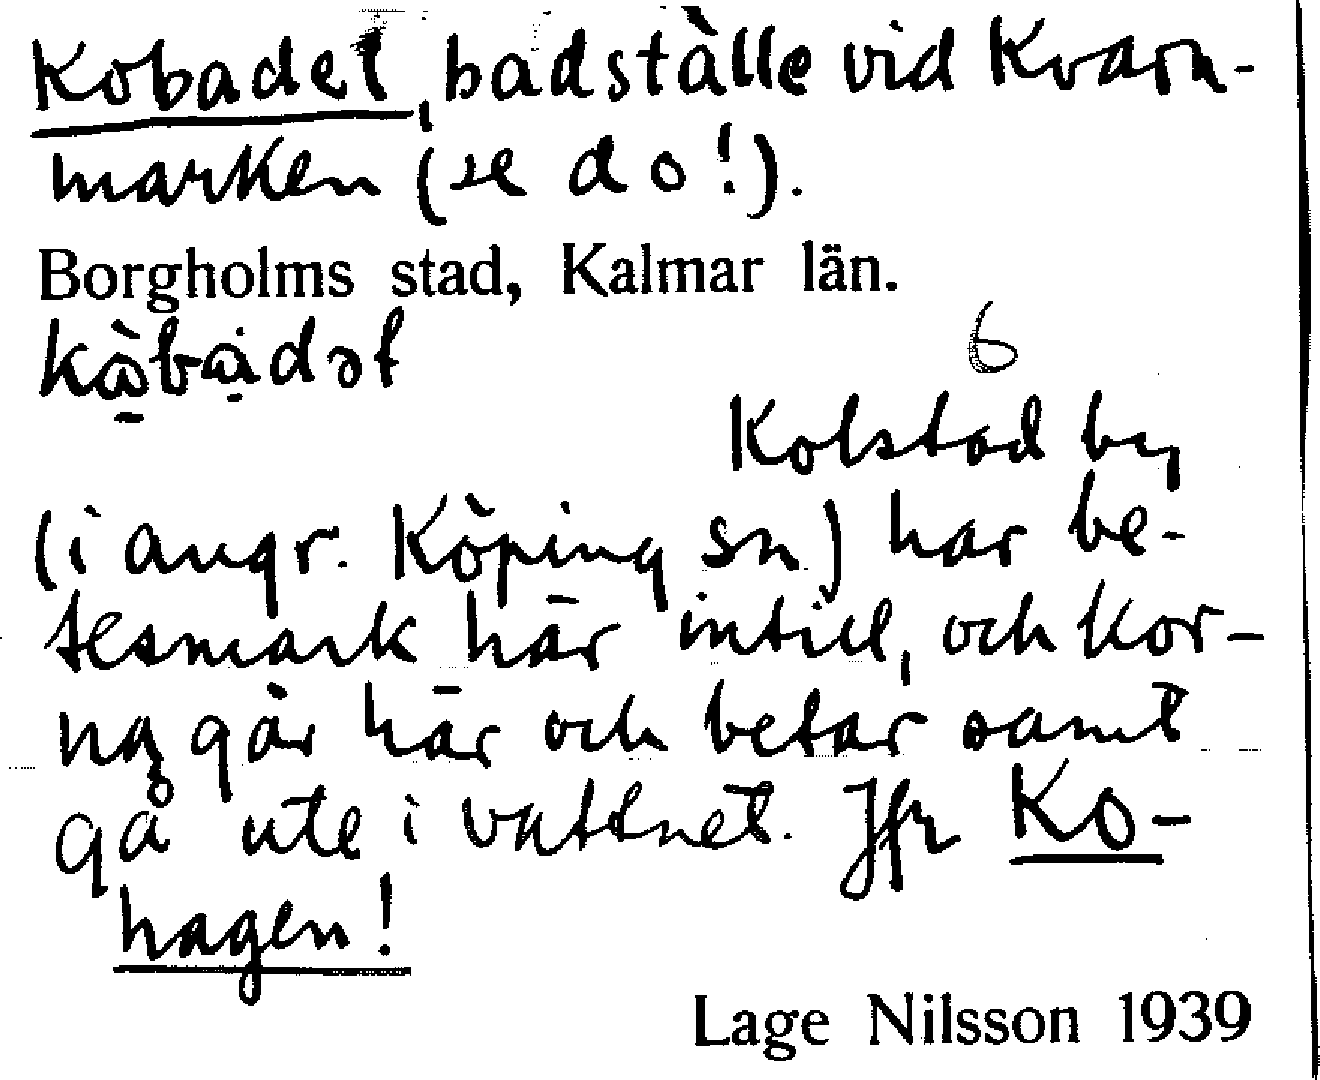 Kobadet, badställe vid Kvarn-
marken (se do!).
Borgholms stad, Kalmar län.
6
Kolstad by
(i angr. Köping sn) har be-
tesmark här intill, och kor-
na går här och betar samt
gå ute i vattnet. Jfr Ko-
hagen!
Lage Nilsson 1939